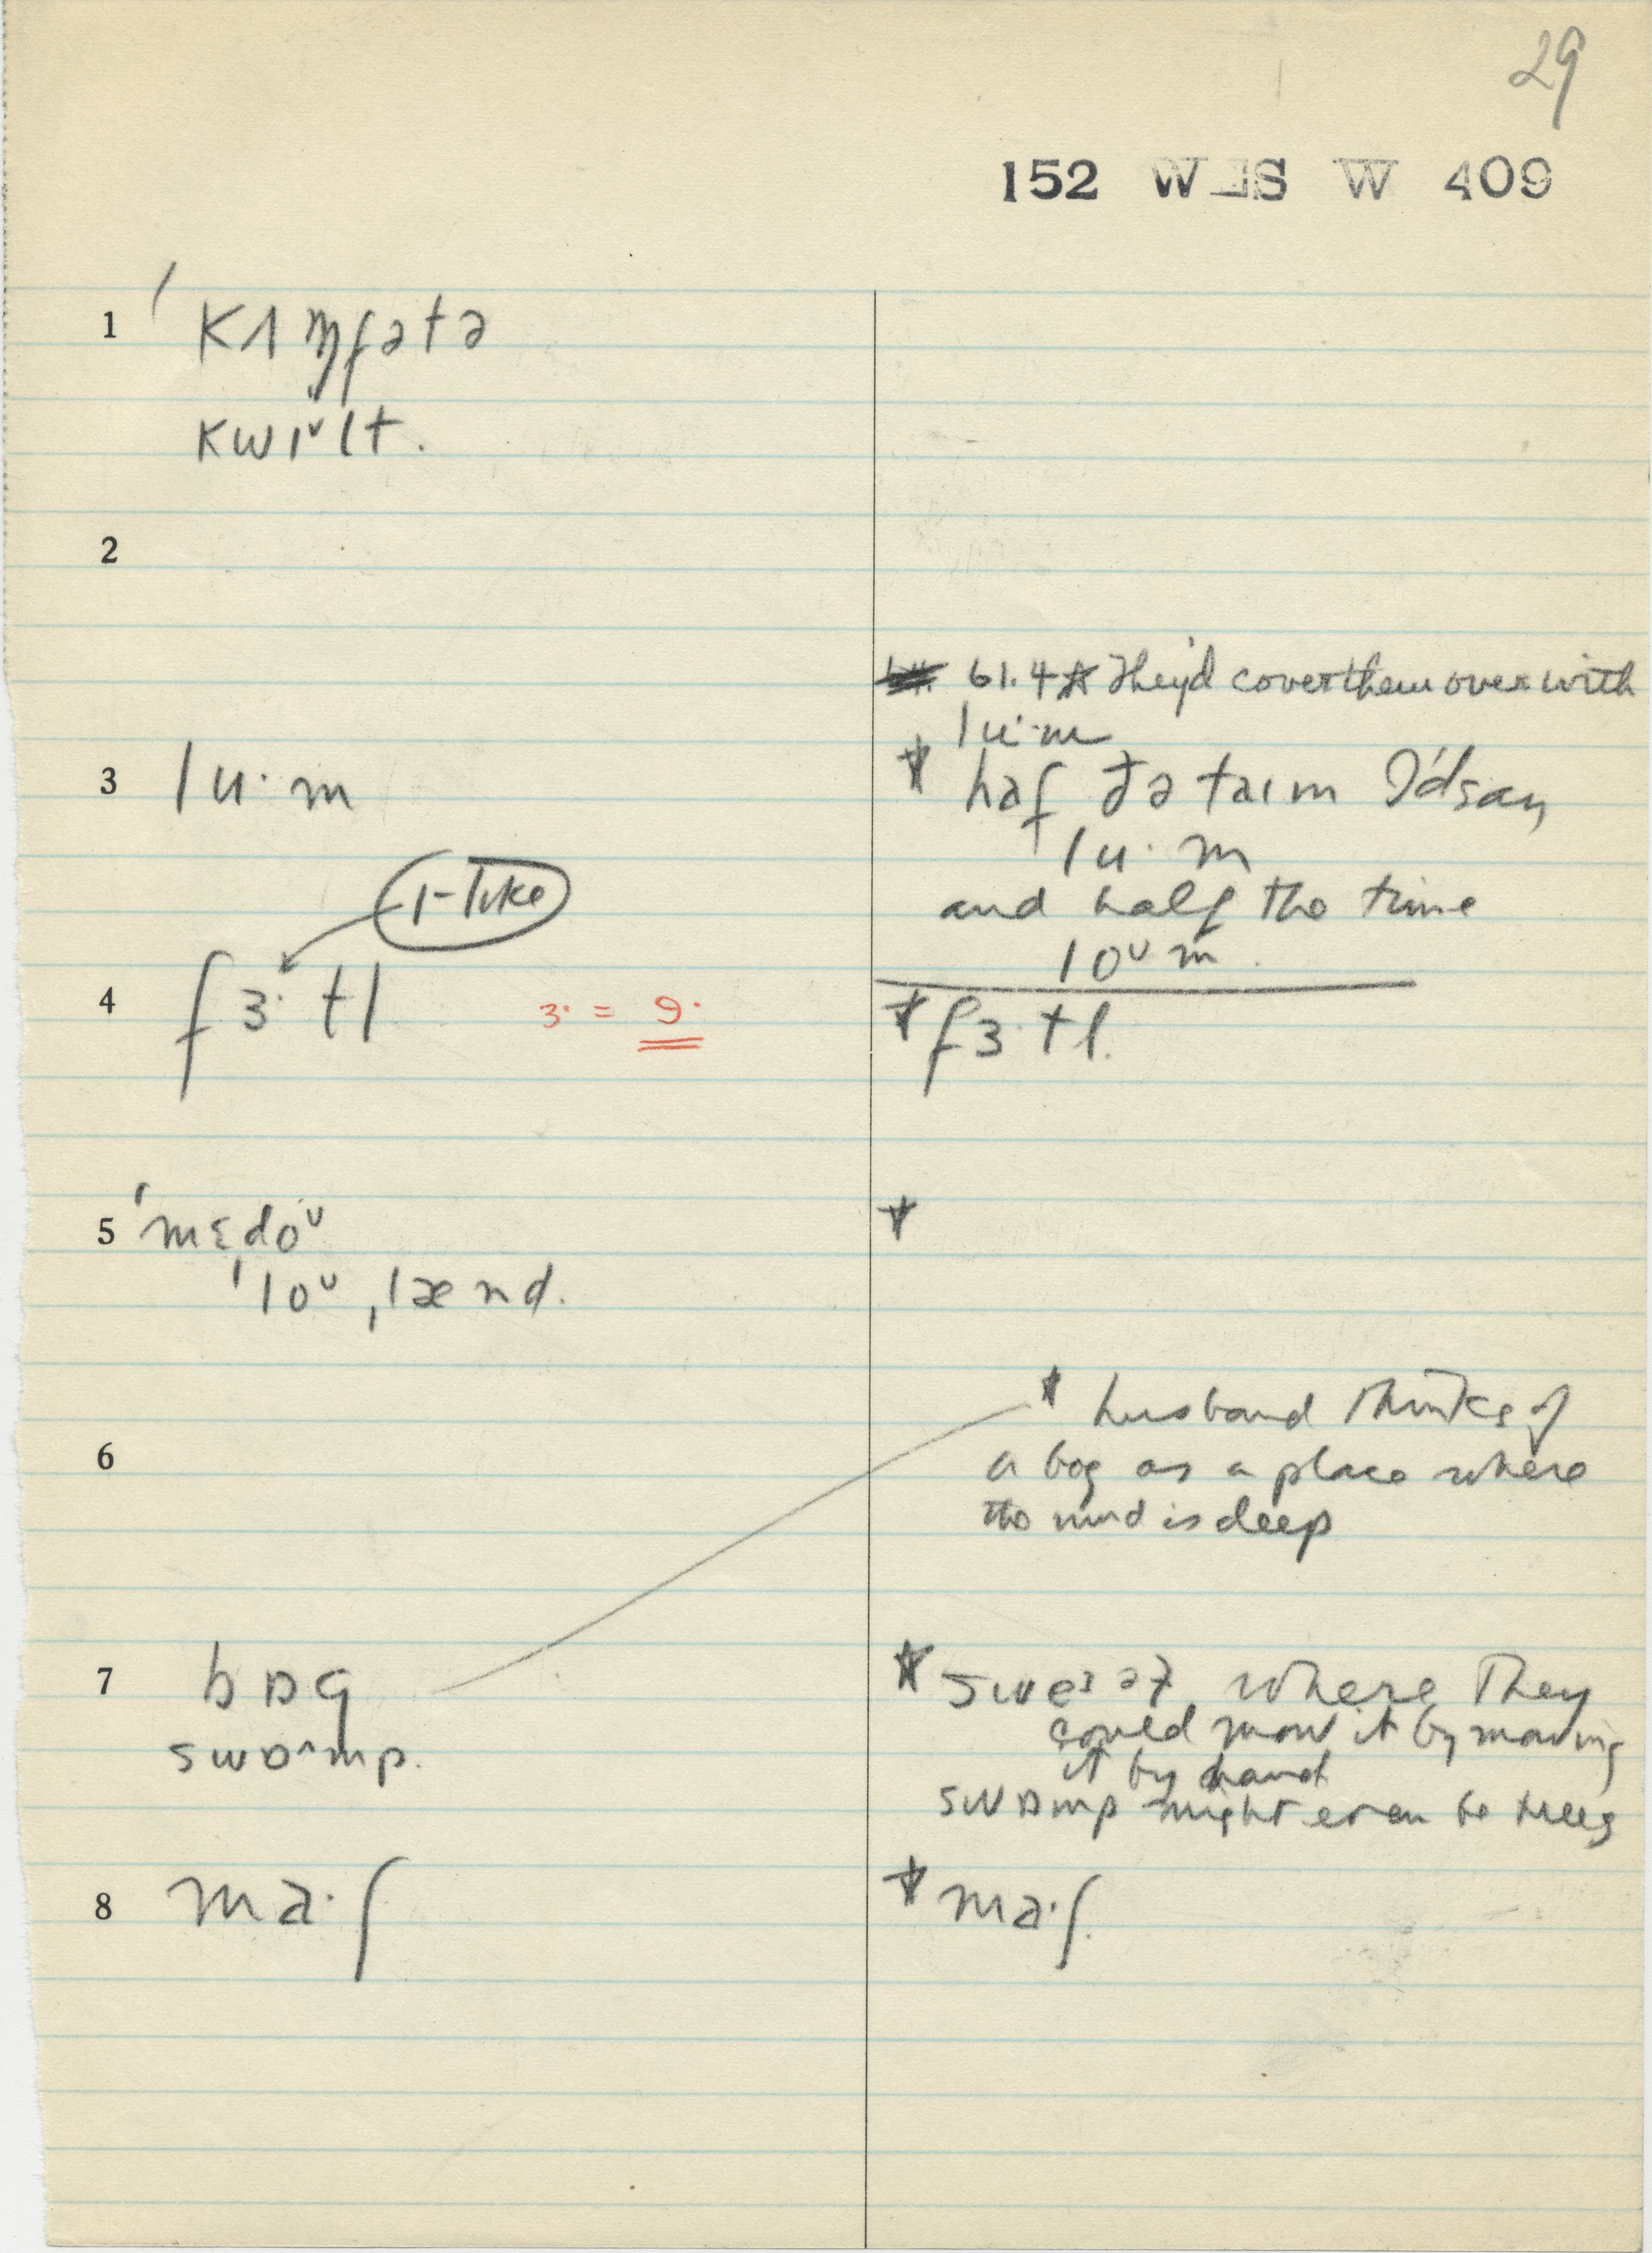 29
152 WES W 409
1 ˈkʌɱfətə
kwɪˇlt.
2
61.4 ☆ They'd cover them over with
lu·m
3 lu·m
* haf ðə taɪm I'd say
lu·m
and half the time
loᵁm.
r-like
4 fɜ·tl
ɜ· = 9·
* fɜ·tl.
5 ˈmɛdoᵁ
ˈloᵁˌlænd.
*
6
* husband thinks of
a bog as a place where
the mud is deep
7 bɒg
swɒ^mp.
* where they
could mow it by mowing
it by hand
swɒmp might even be trees
8 ma·ʃ
* ma·ʃ.